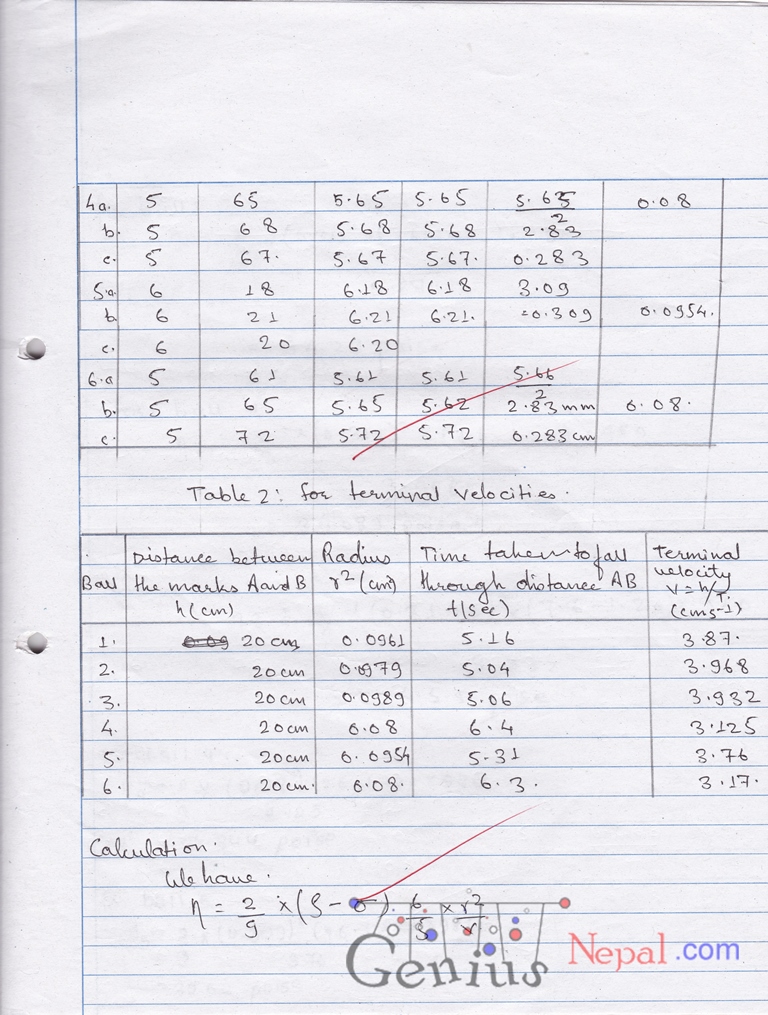 4a. 5 65 5.65 5.65 5.65/2 0.08
b. 5 68 5.68 5.68 2.83
c. 5 67. 5.67 5.67. 0.283
5.a 6 18 6.18 6.18 3.09
b 6 21 6.21 6.21. =0.309 0.0954.
c. 6 20 6.20
6.a 5 61 5.61 5.61 5.66/2
b. 5 65 5.65 5.62 2.83 mm 0.08.
c. 5 72 5.72 5.72 0.283 cm
Table 2: for terminal velocities.
Ball Distance between the marks A and B h (cm) Radius r² (cm) Time taken to fall through distance AB t (sec) Terminal velocity V = h/T. (cms-1)
1. 20 cm 0.0961 5.16 3.87.
2. 20cm 0.0979 5.04 3.968
3. 20cm 0.0989 5.06 3.932
4. 20cm 0.08 6.4 3.125
5. 20cm 0.0954 5.31 3.76
6. 20cm. 0.08. 6.3. 3.17.
Calculation.
We have.
η = 2/9 × (ρ - σ).
Genius Nepal.com